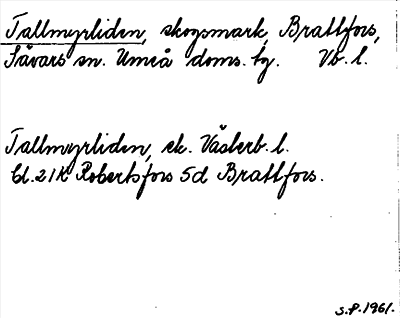 Tallmyrliden, skogsmark, Brattfors,
Sävars sn. Umeå doms. tg. Vb. l.
Tallmyrliden, ek. Västerb. l.
Bl. 21K Robertsfors 5d Brattfors.
S.P. 1961.